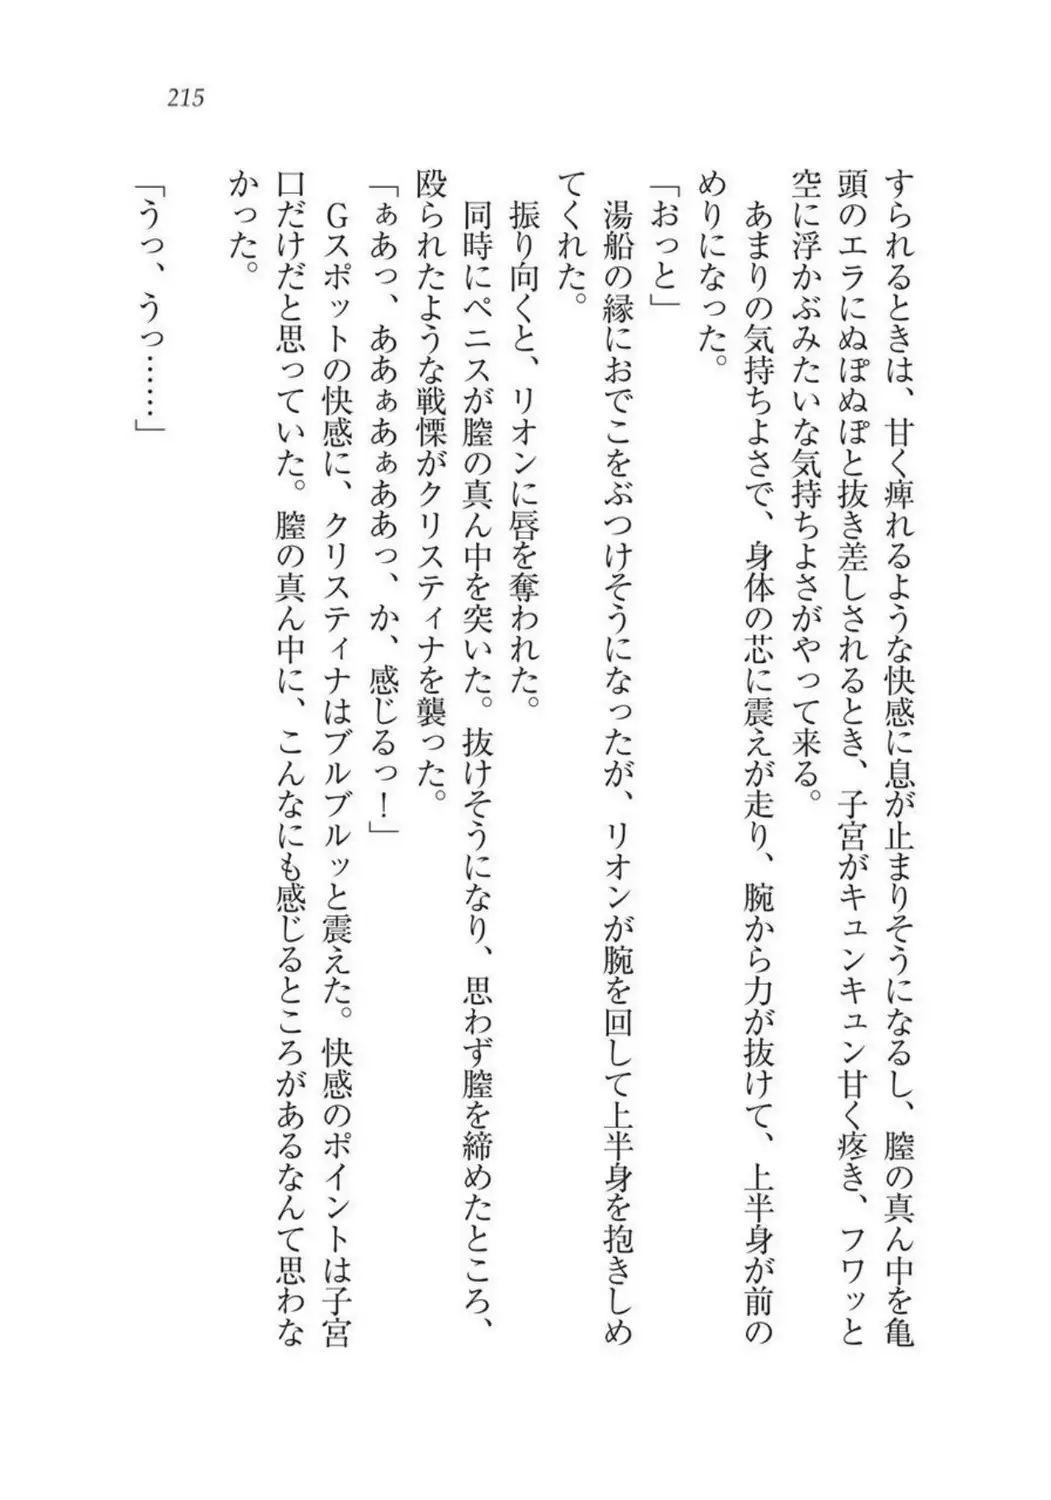 215
すられるときは、甘く痺れるような快感に息が止まりそうになるし、膣の真ん中を亀
頭のエラにぬぽぬぽと抜き差しされるとき、子宮がキュンキュン甘く疼き、フワッと
空に浮かぶみたいな気持ちよさがやって来る。
あまりの気持ちよさで、身体の芯に震えが走り、腕から力が抜けて、上半身が前の
めりになった。
「おっと」
湯船の縁におでこをぶつけそうになったが、リオンが腕を回して上半身を抱きしめ
てくれた。
振り向くと、リオンに唇を奪われた。
同時にペニスが膣の真ん中を突いた。抜けそうになり、思わず膣を締めたところ、
殴られたような戦慄がクリスティナを襲った。
「ぁあっ、ああぁあぁああっ、か、感じるっ！」
Gスポットの快感に、クリスティナはブルブルッと震えた。快感のポイントは子宮
口だけだと思っていた。膣の真ん中に、こんなにも感じるところがあるなんて思わな
かった。
「うっ、うっ……」